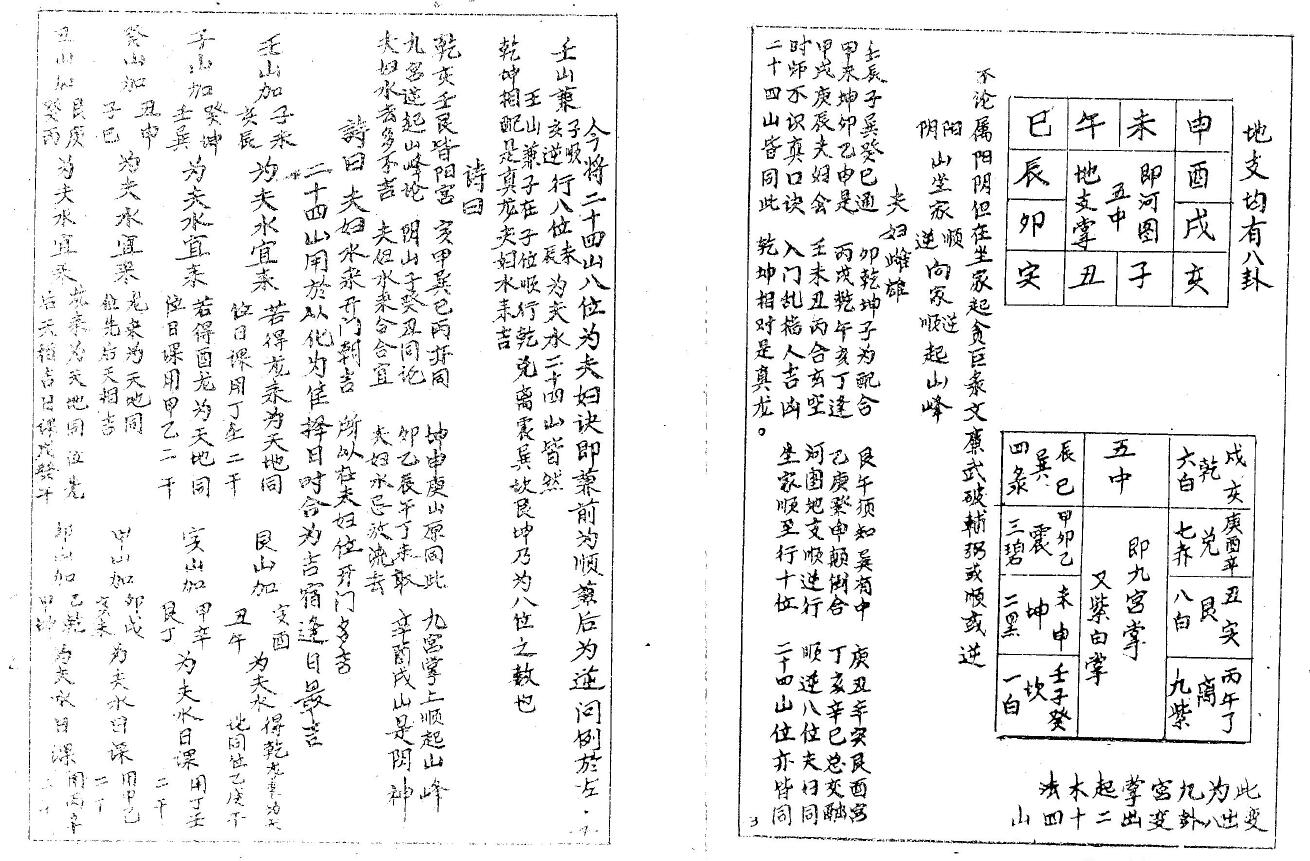 地支均有八卦
巳 午 未 申
辰 地支掌 五中 即河图 酉
卯 戌
亥 丑 子 亥
辰巳 巽 四彔
五中
戌亥 乾 六白
甲卯乙 震 三碧
庚酉辛 兑 七赤
未申 坤 二黑
即九宫掌
又紫白掌
丑 艮 八白
壬子癸 坎 一白
丙午丁 离 九紫
此变
为出
九卦八
宫变
掌出
起二
木十
法四
山
不论属阳阴但在坐家起贪巨彔文廉武破輔弼或顺或逆
阳阴山坐家顺逆向家逆顺起山峰
夫妇雌雄
壬辰子巽癸巳通 卯乾坤子为配合 艮午须知巽有中 庚丑辛
甲未坤卯乙申是 丙戌乾午亥丁逢 乙庚癸申顛倒合 丁亥辛巳总交融
甲戌庚辰夫妇会 壬未丑丙合玄空 河图地支顺逆行 顺逆八位夫日同
时师不识真口诀 入门乱指人吉凶 坐家顺至行十位
二十四山皆同此 乾坤相对是真龙。 二十四山位亦皆同
3
今将二十四山八位为夫妇诀即兼前为顺兼后为逆问例於左
壬山兼子顺亥逆行八位未辰为夫水二十四山皆然
壬山兼子在子位顺行乾兑离震巽坎艮坤乃为八位之数也
乾坤相配是真龙夫妇水来吉
诗曰
乾亥壬艮皆阳宫 寅甲巽巳丙亦同 坤申庚山原同此 九宫掌上顺起山峰
九宫逆起山峰论 阴山子癸丑同论 卯乙辰午丁未取 辛酉戌山是阴神
夫妇水去多不吉 夫妇水来合合宜 夫妇水忌放流去
詩曰 夫妇水来开门朝吉 所以在夫妇位开门多吉
二十四山用於以化为佳择日时合为吉宿逢日最吉
壬山加 子未 亥辰 为夫水宜来 若得龙来为天地同位日课用丁壬二干 艮山加 寅酉 丑午 为夫水
子山加 癸坤 壬巽 为夫水宜来 若得酉龙为天地同位日课用甲乙二干 寅山加 甲辛 艮丁 为夫水日课 用丁壬二干
癸山加 丑申 子巳 为夫水宜来 龙来为天地同位先后天相吉 甲山加 卯戌 寅未 为夫水日课 用甲己二干
丑山加 艮庚 癸丙 为夫水宜来 卯山加 乙乾 甲坤 为夫水日课